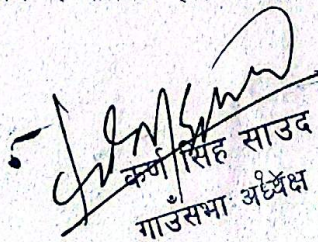 कर्ण सिंह साउद
गाउँसभा अध्यक्ष